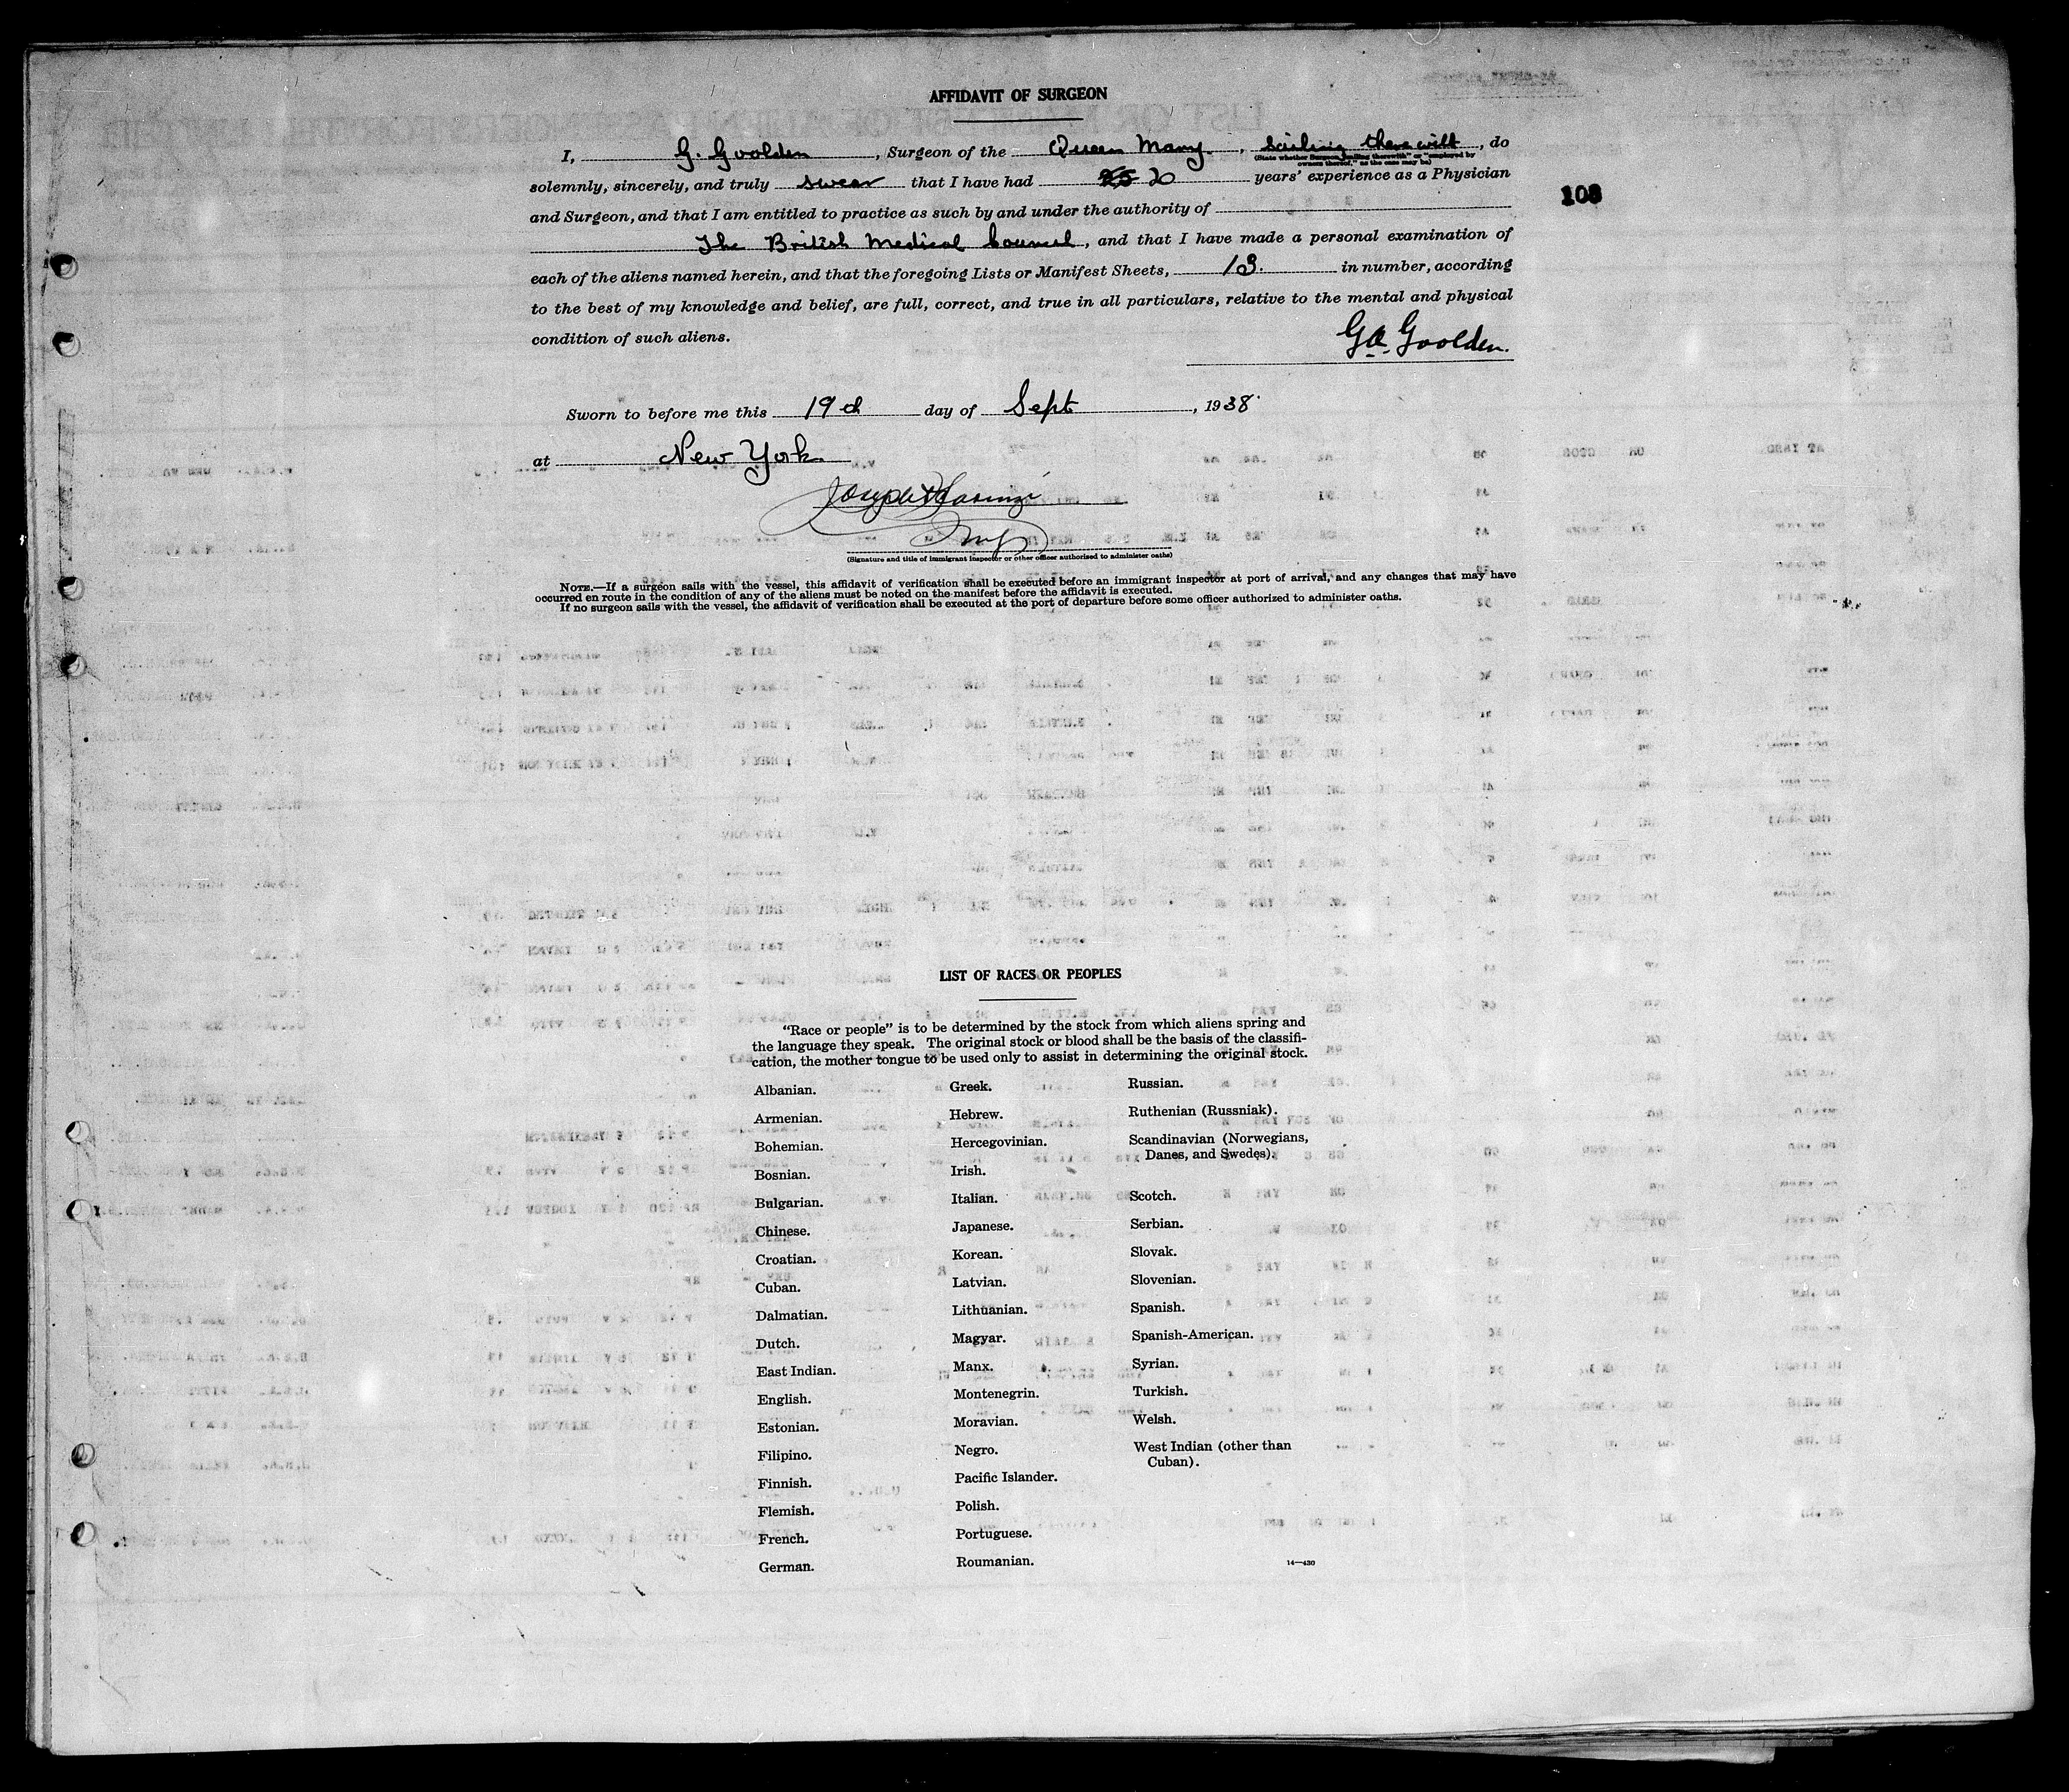 AFFIDAVIT OF SURGEON
I, G. Goolden, Surgeon of the Queen Mary, Sailing therewith, do
(State whether Surgeon "sailing therewith" or "employed by
owners thereof," as the case may be)
solemnly, sincerely, and truly swear that I have had 20 years' experience as a Physician
108
and Surgeon, and that I am entitled to practice as such by and under the authority of
The British Medical Council, and that I have made a personal examination of
each of the aliens named herein, and that the foregoing Lists or Manifest Sheets, 13. in number, according
to the best of my knowledge and belief, are full, correct, and true in all particulars, relative to the mental and physical
condition of such aliens.
G.A. Goolden.
Sworn to before me this 19th day of Sept, 1938
at New York.
Joseph
(Signature and title of immigrant inspector or other officer authorized to administer oaths)
NOTE.—If a surgeon sails with the vessel, this affidavit of verification shall be executed before an immigrant inspector at port of arrival, and any changes that may have
occurred en route in the condition of any of the aliens must be noted on the manifest before the affidavit is executed.
If no surgeon sails with the vessel, the affidavit of verification shall be executed at the port of departure before some officer authorized to administer oaths.
LIST OF RACES OR PEOPLES
"Race or people" is to be determined by the stock from which aliens spring and
the language they speak. The original stock or blood shall be the basis of the classifi-
cation, the mother tongue to be used only to assist in determining the original stock.
Albanian.
Armenian.
Bohemian.
Bosnian.
Bulgarian.
Chinese.
Croatian.
Cuban.
Dalmatian.
Dutch.
East Indian.
English.
Estonian.
Filipino.
Finnish.
Flemish.
French.
German.
Greek.
Hebrew.
Hercegovinian.
Irish.
Italian.
Japanese.
Korean.
Latvian.
Lithuanian.
Magyar.
Manx.
Montenegrin.
Moravian.
Negro.
Pacific Islander.
Polish.
Portuguese.
Roumanian.
Russian.
Ruthenian (Russniak).
Scandinavian (Norwegians,
Danes, and Swedes).
Scotch.
Serbian.
Slovak.
Slovenian.
Spanish.
Spanish-American.
Syrian.
Turkish.
Welsh.
West Indian (other than
Cuban).
14—430